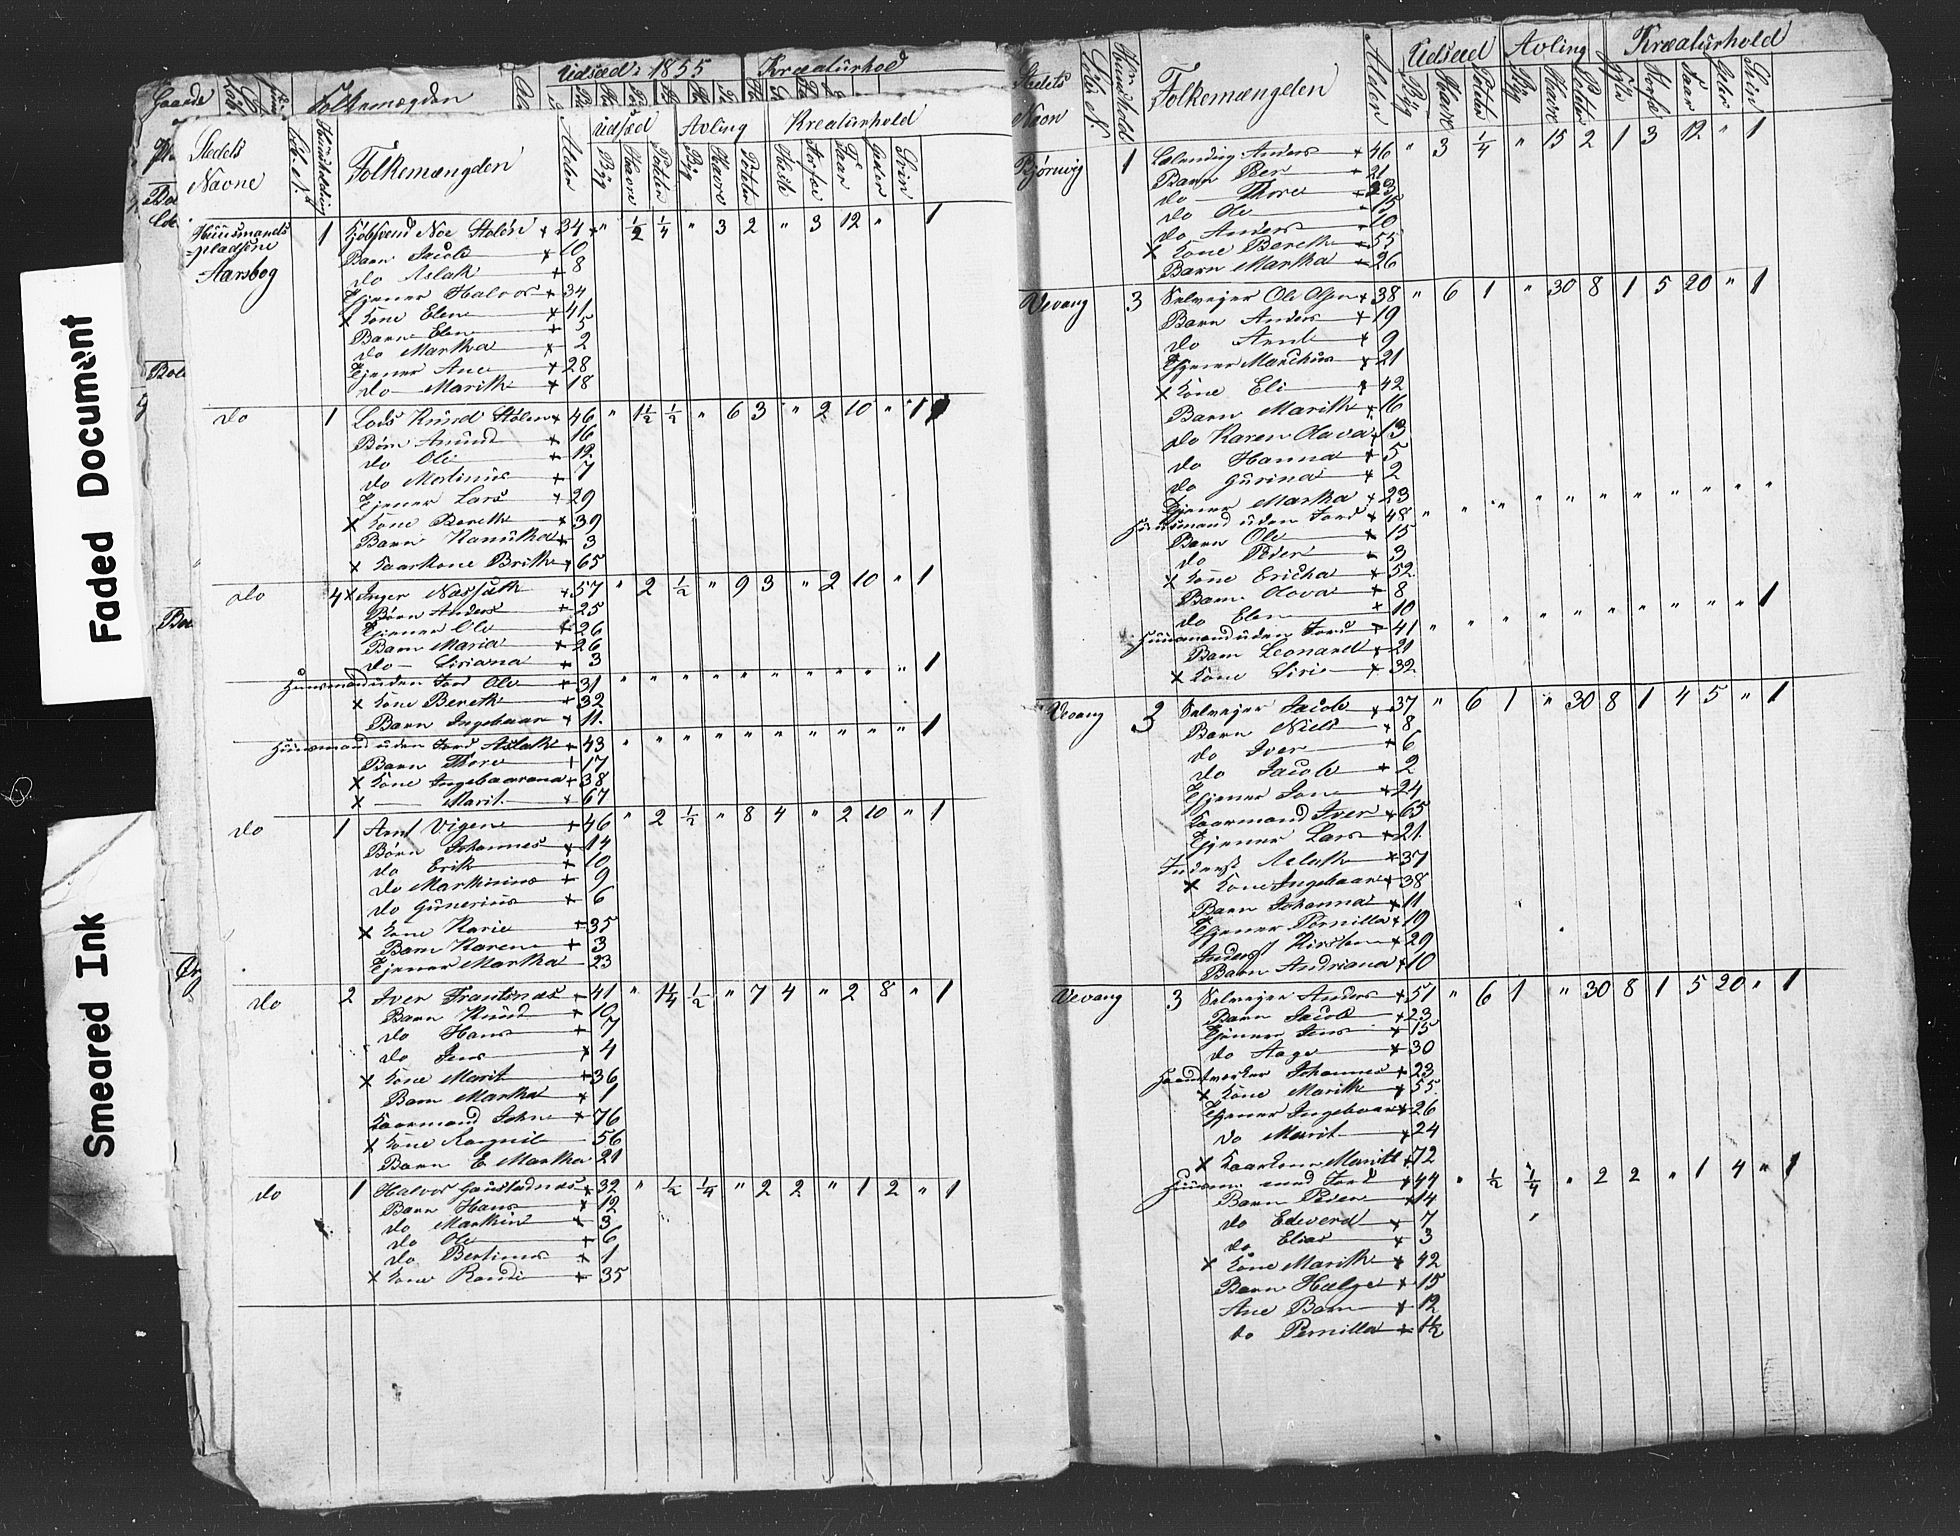 Faded Document
Smeared Ink
Gaarde
Folkemægden
Udsæd i 1855
Kreaturhod
Stedets Navne
Huusholdning
Folkemængden
Alder
Udsæd
Avling
Kreaturhold
Byg Havre Poteter Byg Havre Poteter Heste Storfæ Faar Geder Svin
Huusmands pladsene Aarsbog 1 Kjøbsvend Noe Stolen × 34 " 1/2 1/4 " 3 2 " 3 12 " 1
Barn Jacob × 10
do Aslak + 8
Tjener Halvor + 34
× Kone Elen × 41
Barn Elen + 5
do Martha × 2
Tjener Ane × 28
do Marith + 18
do 1 Lods Knud Stolen × 46 " 1 1/2 1/2 " 6 3 " 2 10 " 1
Børn Amund + 16
do Ole + 12
do Mortinus + 7
Tjener Lars + 29
× Kone Bereth + 39
Barn Hanükka + 3
× Kaarkone Brithe × 65
do 4 × Inger Nassath × 57 " 2 1/2 " 9 3 " 2 10 " 1
Børn Anders + 25
Tjener Ole + 26
Barn Maria + 26
do Siriana + 3
Huusmand uden Jord Ole + 31 " " " " " " " " " " 1
× Kone Bereth + 32
Barn Ingebaar + 11
Huusmand uden Jord Aslak + 43 " " " " " " " " " " 1
Barn Thore + 17
× Kone Ingebaarana + 38
× Marit × 67
do 1 Arnt Vigen + 46 " 2 1/2 " 8 4 " 2 10 " 1
Børn Johannes × 14
do Erik + 10
do Marthinus + 9
do Gunerius × 6
× Kone Karie + 35
Barn Karen + 3
Tjener Martha 23
do 2 Iver Frantsnæs + 41 " 1 1/4 1/2 " 7 4 " 2 8 " 1
Barn Knud + 10
do Hans + 7
do Jens × 4
× Kone Marit + 36
Barn Martha × 1
Kaarmand John × 76
× Kone Ragnil 56
Barn E Martha 21
do 1 Halvor Gaustadnæs × 32 " 1/2 1/4 " 2 2 " 1 2 " 1
Barn Hans × 12
do Marthin × 3
do Ole + 6
do Bertinus + 1
× Kone Randi + 35
Stedets Navn
Huushold
Folkemængden
Alder
Udsæd
Avling
Kreaturhold
Byg Havre Poteter Byg Havre Poteter Heste Storfæ Faar Geder Svin
Bjørnvig 1 Lælending Anders × 46 " 3 1/4 " 15 2 1 3 12 " 1
Barn Peer × 21
do Thore + 23
do Ole + 15
do Anders + 10
× Kone Bereth + 55
Barn Martha + 26
Vevang 3 Selvejer Ole Olsen × 38 " 6 1 " 30 8 1 5 20 " 1
Barn Anders + 19
do Arnt × 9
Tjener Marchus × 21
× Kone Eli × 42
Barn Marith × 16
do Karen Olava 13
do Hanna + 5
do Gurina × 2
Tjener Martha × 23
Huusmand uden Jord × 48 " " " " " " " " " " "
Barn Ole × 15
do Peder + 3
× Kone Ericka × 52
Barn Olava × 8
do Elen + 10
Huusmand uden Jord + 41 " " " " " " " " " " 1
Barn Leonard + 21
× Kone Siri × 32
Vevang 3 Selvejer Jacob × 37 " 6 1 " 30 8 1 4 5 " 1
Barn Niels × 8
do Iver + 6
do Jacob + 2
Tjener Jon + 24
Kaarmand Iver × 65
Tjener Lars + 21
Inderst Aslak + 37
× Kone Ingebaar × 38
Barn Johanna × 11
Tjener Pernilla × 19
Inderst Kirsten × 29
Barn Andriana × 10
Vevang 3 Selvejer Anders × 51 " 6 1 " 30 8 1 5 20 " 1
Barn Jacob × 23
Tjener Jens × 15
do Aage × 30
Haandverker Johannes + 23
× Kone Marith × 55
Tjener Ingebaar × 26
do Marit × 24
× Kaarkone Maritt 72
Huusm. med Jord × 44 " 1/2 1/4 " 2 2 " 1 4 " 1
Barn Peder × 14
do Edeverd × 7
do Elias × 3
× Kone Marith × 42
Barn Hælge × 15
Ane Barn × 12
do Pernilla × 1 1/2